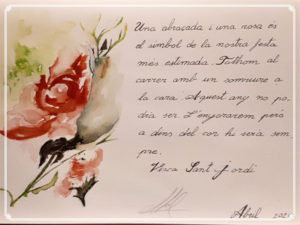 Una abraçada i una rosa és
el símbol de la nostra festa
més estimada. Tothom al
carrer amb un somriure a
la cara. Aquest any no po-
dia ser. L'enyorarem però
a dins del cor hi serà sem
pre.
Visca Sant Jordi
Abril 2020